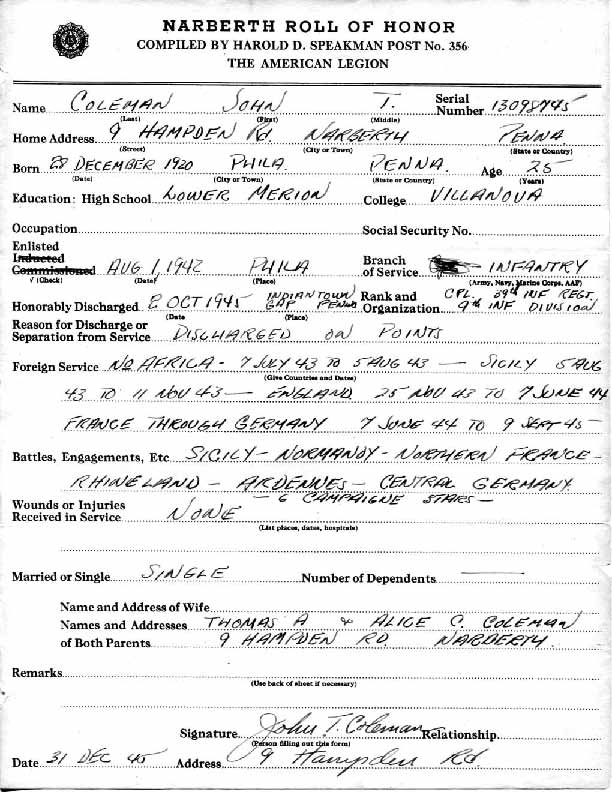 NARBERTH ROLL OF HONOR
COMPILED BY HAROLD D. SPEAKMAN POST No. 356
THE AMERICAN LEGION
Name COLEMAN JOHN T. Serial Number 13098745
(Last) (First) (Middle)
Home Address 9 HAMPDEN Rd. NARBERTH PENNA.
(Street) (City or Town) (State or Country)
Born 28 DECEMBER 1920 PHILA. PENNA. Age 25
(Date) (City or Town) (State or Country) (Years)
Education: High School LOWER MERION College VILLANOVA
Occupation Social Security No.
Enlisted
Inducted
Commissioned AUG 1, 1942 PHILA Branch of Service INFANTRY
√ (Check) (Date) (Place) (Army, Navy, Marine Corps, AAF)
Honorably Discharged 2 OCT 1945 INDIANTOWN GAP PENNA Rank and Organization CPL. 39th INF REGT. 9th INF DIVISION
(Date) (Place)
Reason for Discharge or
Separation from Service DISCHARGED ON POINTS
Foreign Service NO. AFRICA - 7 JULY 43 TO 5 AUG 43 — SICILY 5 AUG
(Give Countries and Dates)
43 TO 11 NOV 43 — ENGLAND 25 NOV 43 TO 7 JUNE 44
FRANCE THROUGH GERMANY 7 JUNE 44 TO 9 SEPT 45 -
Battles, Engagements, Etc. SICILY - NORMANDY - NORTHERN FRANCE -
RHINELAND - ARDENNES - CENTRAL GERMANY
- 6 CAMPAIGNE STARS -
Wounds or Injuries
Received in Service NONE
(List places, dates, hospitals)
Married or Single SINGLE Number of Dependents —
Name and Address of Wife
Names and Addresses THOMAS A & ALICE C. COLEMAN
of Both Parents 9 HAMPDEN RD. NARBERTH.
Remarks
(Use back of sheet if necessary)
Signature John T. Coleman Relationship
(Person filling out this form)
Date 31 DEC 45 Address 9 Hampden Rd